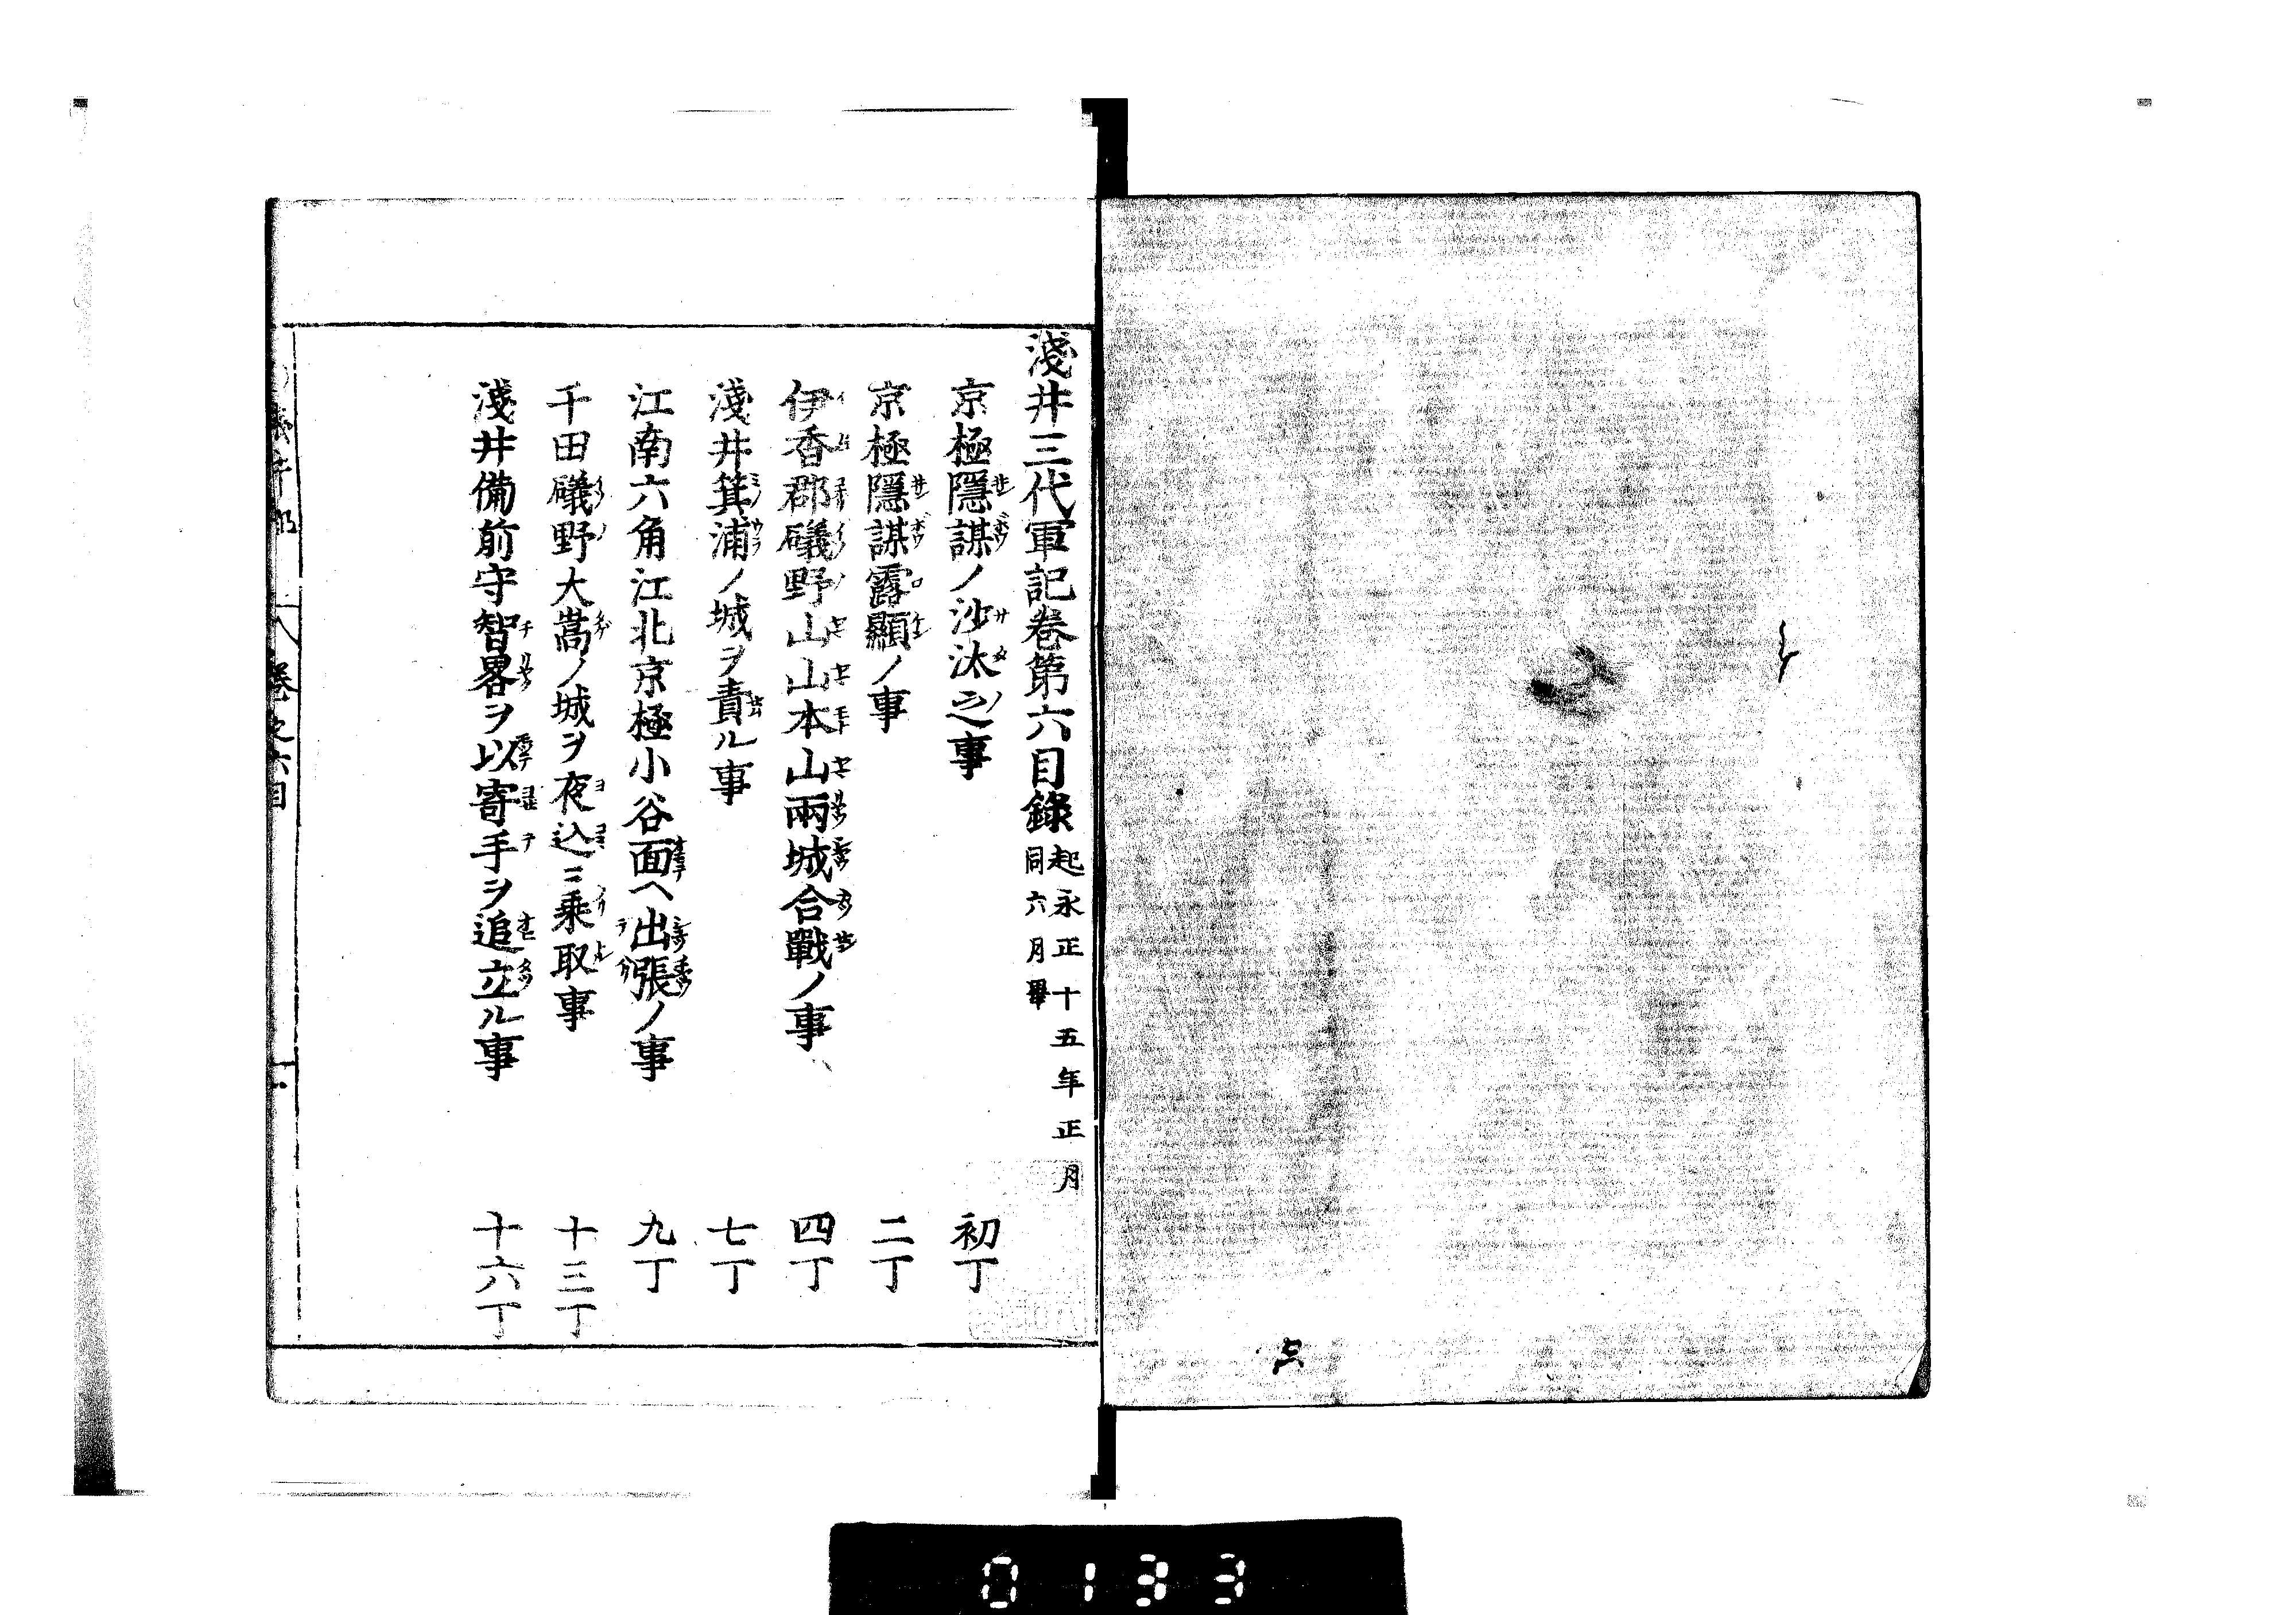 淺井三代軍記卷第六目錄 起永正十五年正月
同六月畢
京極隱謀ノ沙汰之事 初丁
京極隱謀露顯ノ事 二丁
伊香郡礒野山山本山兩城合戰ノ事 四丁
淺井箕浦ノ城ヲ責ル事 七丁
江南六角江北京極小谷面ヘ出張ノ事 九丁
千田礒野大嵩ノ城ヲ夜込ニ乘取事 十三丁
淺井備前守智畧ヲ以寄手ヲ追立ル事 十六丁
卷之六目
0133